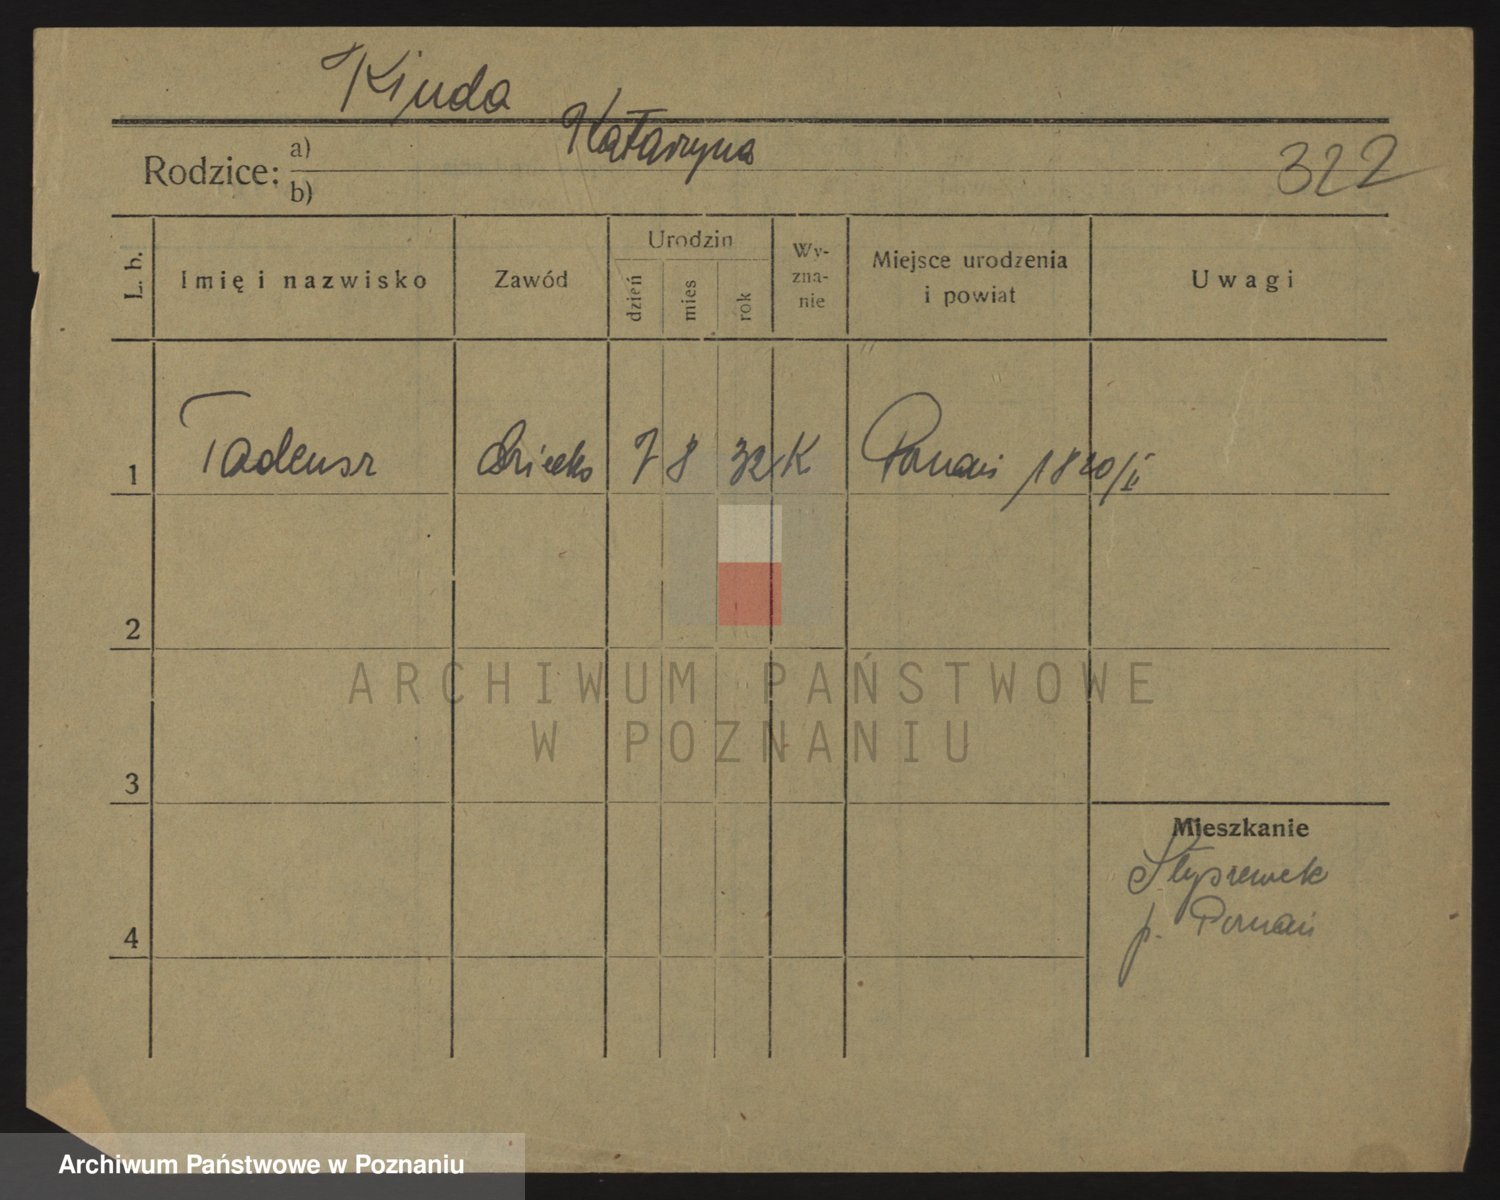 Kinda
Rodzice: a) Katarzyna
b)
322
L. b.
Imię i nazwisko
Zawód
Urodzin
dzień
mies
rok
Wy-
zna-
nie
Miejsce urodzenia
i powiat
Uwagi
1 Tadeusz dziecko 7 8 32 K Poznań 1820/II
2
ARCHIWUM PAŃSTWOWE
W POZNANIU
3
Mieszkanie
p. Poznań
4
Archiwum Państwowe w Poznaniu